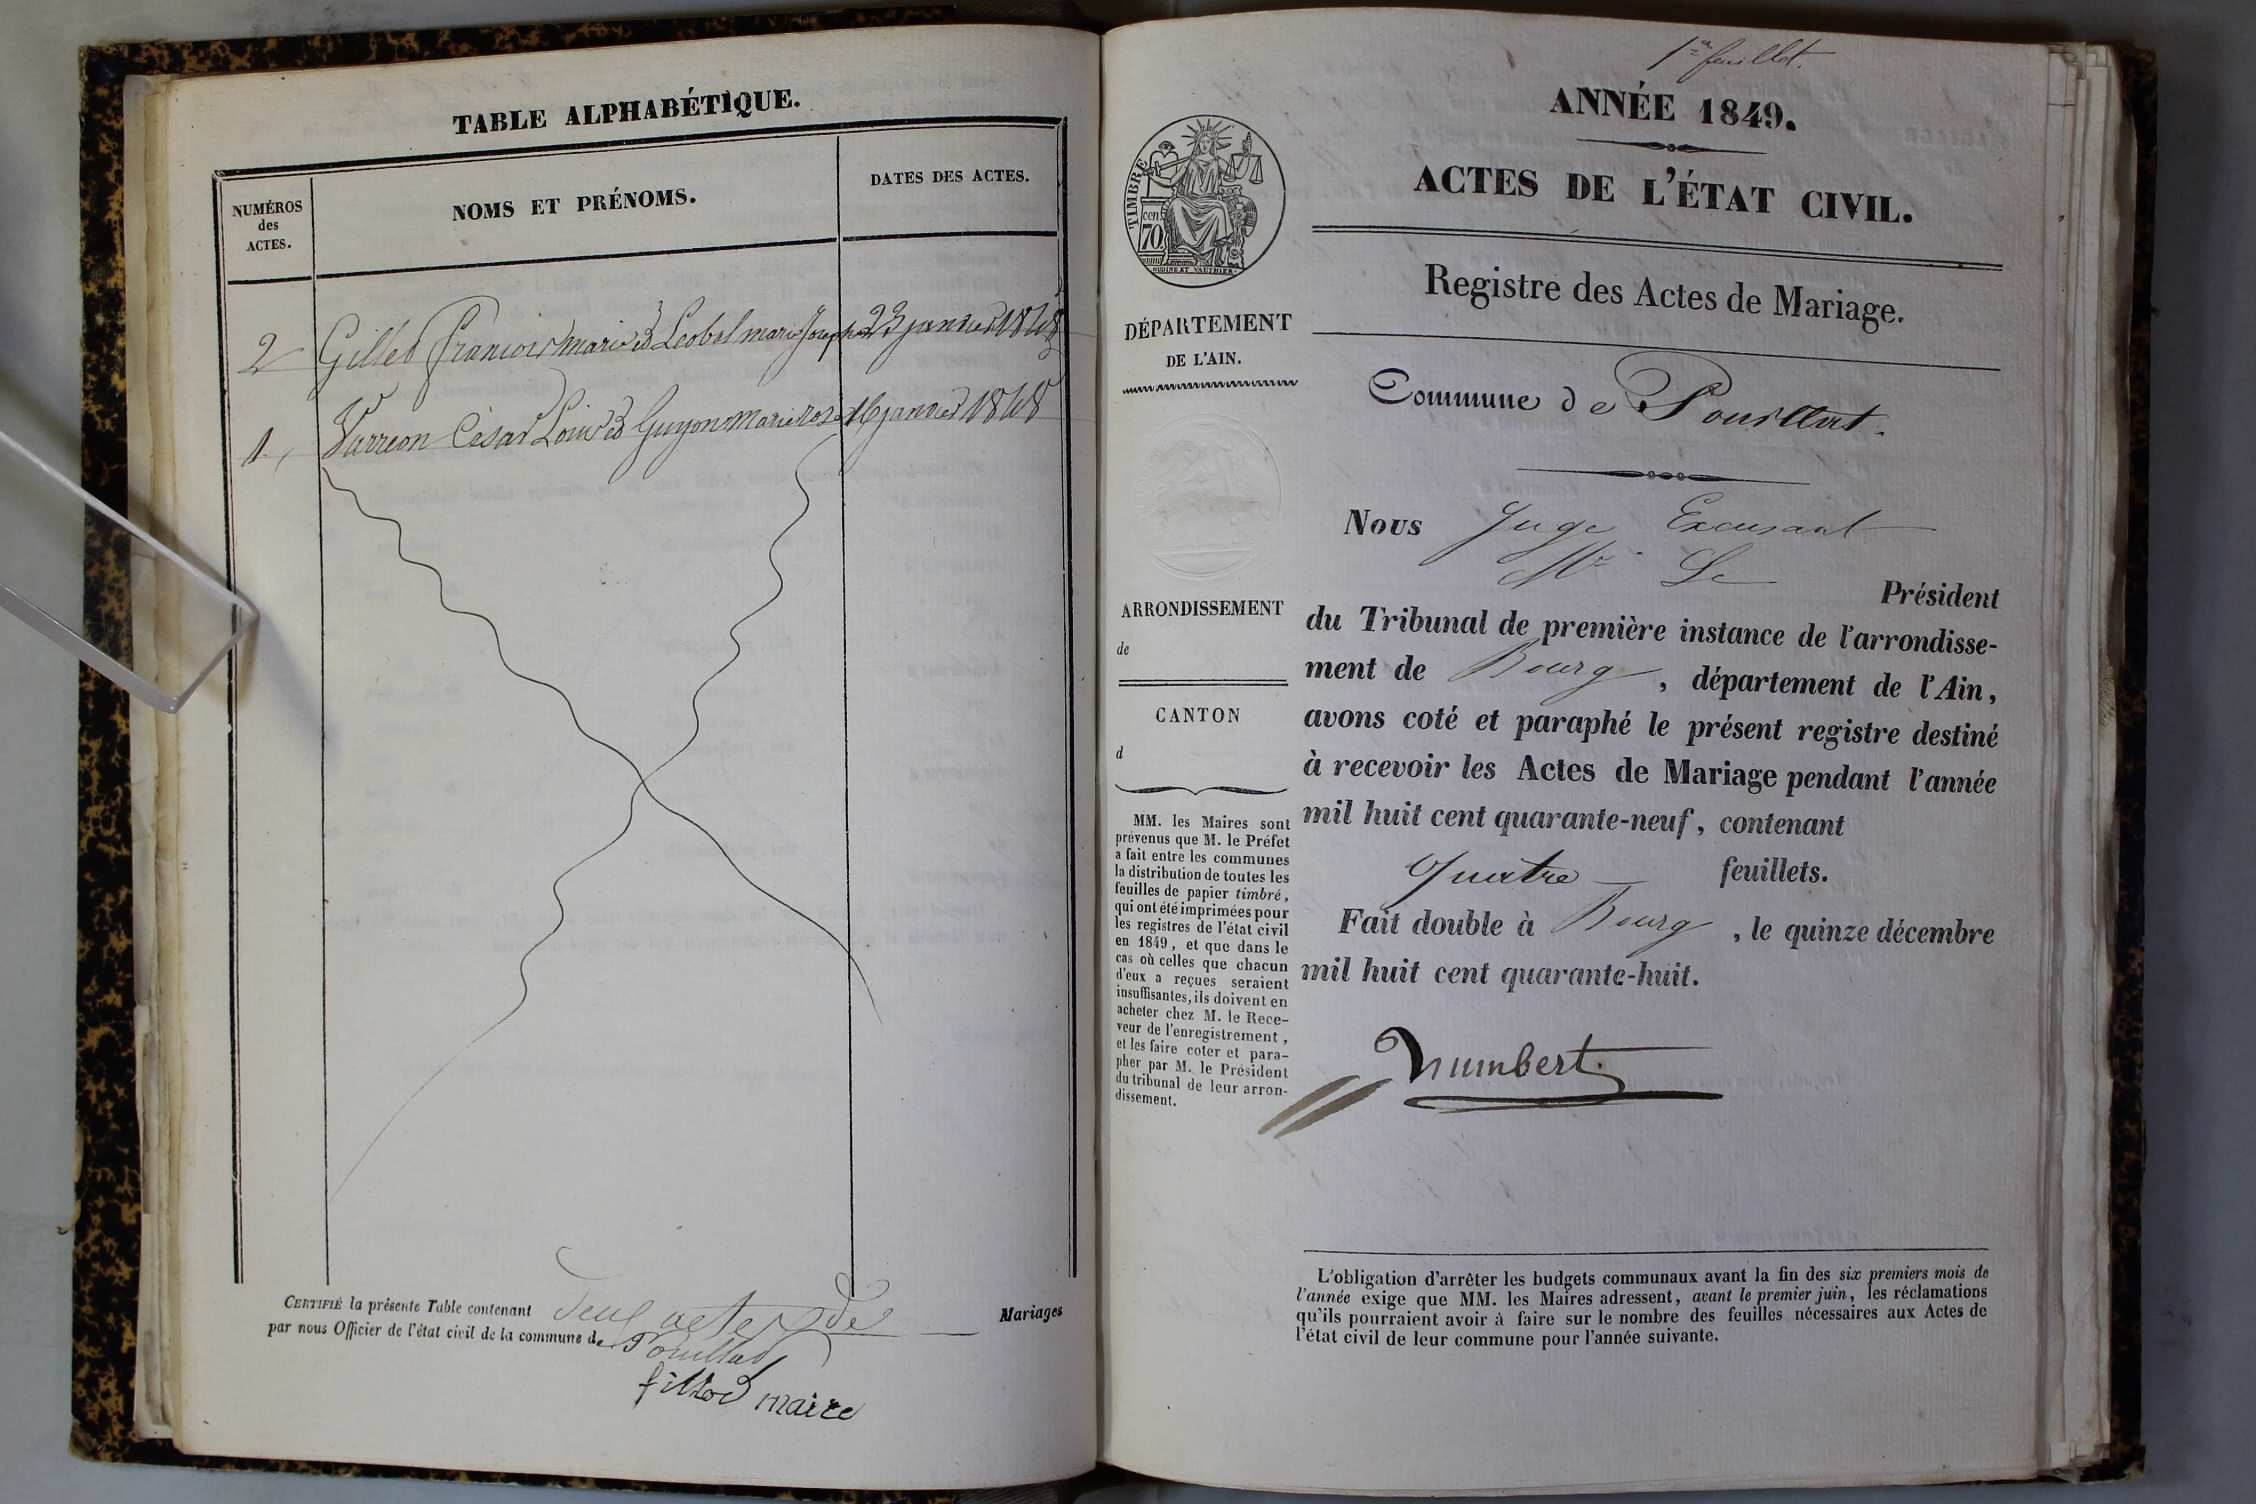 TABLE ALPHABÉTIQUE.
NUMÉROS
des
ACTES.
NOMS ET PRÉNOMS.
DATES DES ACTES.
2 Gillet françois marie et marie Josephe 23 janvier 1848
1, César Louis et Guyon marie rose 16 janvier 1848
CERTIFIÉ la présente Table contenant deux actes de Mariages
par nous Officier de l'état civil de la commune de Pouillat
fillod maire
1er feuillet.
ANNÉE 1849.
ACTES DE L'ÉTAT CIVIL.
TIMBRE
cen.
70
DÉPARTEMENT
DE L'AIN.
ARRONDISSEMENT
de
CANTON
d
MM. les Maires sont
prévenus que M. le Préfet
a fait entre les communes
la distribution de toutes les
feuilles de papier timbré,
qui ont été imprimées pour
les registres de l'état civil
en 1849, et que dans le
cas où celles que chacun
d'eux a reçues seraient
insuffisantes, ils doivent en
acheter chez M. le Rece-
veur de l'enregistrement,
et les faire coter et para-
pher par M. le Président
du tribunal de leur arron-
dissement.
Registre des Actes de Mariage.
Commune de Pouillat.
Nous Juge Excusant
Mr Le
Président
du Tribunal de première instance de l'arrondisse-
ment de Bourg, département de l'Ain,
avons coté et paraphé le présent registre destiné
à recevoir les Actes de Mariage pendant l'année
mil huit cent quarante-neuf, contenant
Quatre feuillets.
Fait double à Bourg, le quinze décembre
mil huit cent quarante-huit.
humbert
L'obligation d'arrêter les budgets communaux avant la fin des six premiers mois de
l'année exige que MM. les Maires adressent, avant le premier juin, les réclamations
qu'ils pourraient avoir à faire sur le nombre des feuilles nécessaires aux Actes de
l'état civil de leur commune pour l'année suivante.